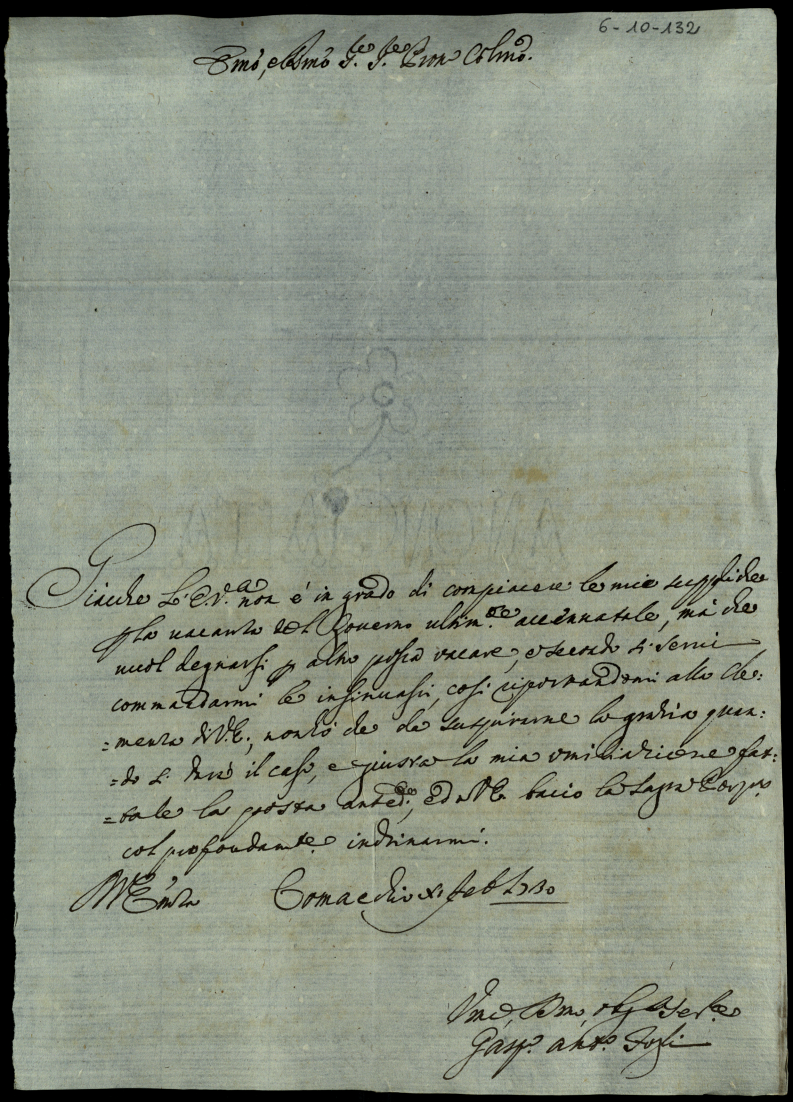 6-10-132
Emo, e Rmo Sre Sre Pron Colmo.
Giache L'E.V.a non é in grado di compiacere le mie suppliche
p la vacanza del Governo ultim.te accennatale, mà che
vuol degnarsi p altro possa vacare, e secondo si servi
commandarmi le insinuassi, così riportandomi alla cle:
=menza di V.E., non hò che de suspirarne la grazia quan:
=do si darà il caso, e giusta la mia umiliazione fat:
=tale la posta anted.te, ed a V.E. bacio la Sagra Porpa
col profondamte inchinarmi.
Di V. Emza Comacchio XI Feb 1730
Vmo, obg Serre
Gasp.o Ant.o